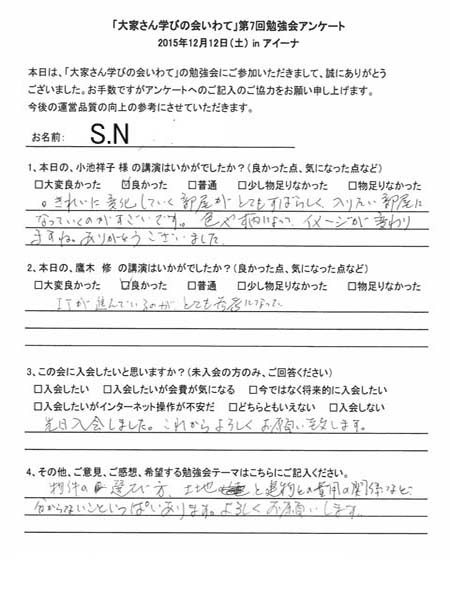 「大家さん学びの会いわて」第7回勉強会アンケート
2015年12月12日(土) in アイーナ
本日は、「大家さん学びの会いわて」の勉強会にご参加いただきまして、誠にありがとう
ございました。お手数ですがアンケートへのご記入のご協力をお願い申し上げます。
今後の運営品質の向上の参考にさせていただきます。
お名前: S.N
1、本日の、小池祥子 様 の講演はいかがでしたか?(良かった点、気になった点など)
□大変良かった ☑良かった □普通 □少し物足りなかった □物足りなかった
。きれいに変化していく部屋がとてもすばらしく、入りたい部屋に
なっていくのがすごいです。色や柄によって、イメージが変わり
ますね。ありがとうございました。
2、本日の、鷹木 修 の講演はいかがでしたか?(良かった点、気になった点など)
□大変良かった ☑良かった □普通 □少し物足りなかった □物足りなかった
ITが進んでいるのが、とても参考になった
3、この会に入会したいと思いますか?(未入会の方のみ、ご回答ください)
□入会したい □入会したいが会費が気になる □今ではなく将来的に入会したい
□入会したいがインターネット操作が不安だ □どちらともいえない □入会しない
先日入会しました。これからよろしくお願い致します。
4、その他、ご意見、ご感想、希望する勉強会テーマはこちらにご記入ください。
物件の選び方、土地と建物との費用の関係など、
分からないこといっぱいあります。よろしくお願いします。